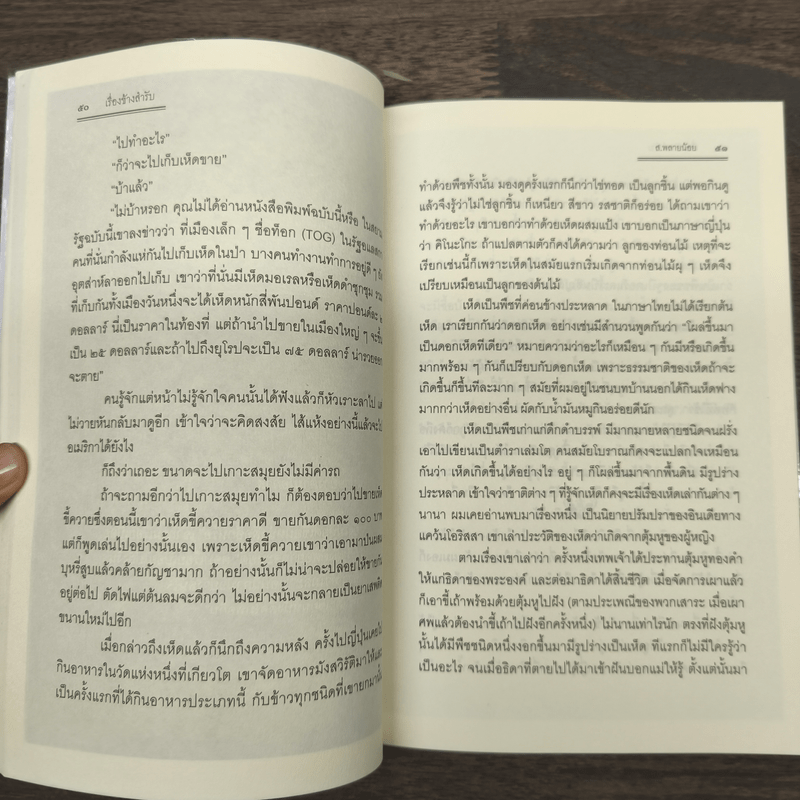 ๕๐ เรื่องข้างสำรับ
"ไปทำอะไร"
"ก็ว่าจะไปเก็บเห็ดขาย"
"บ้าแล้ว"
"ไม่บ้าหรอก คุณไม่ได้อ่านหนังสือพิมพ์ฉบับนี้หรือ
รัฐฉบับนี้เขาลงข่าวว่า ที่เมืองเล็ก ๆ ชื่อท็อก (TOG)
คนที่นั่นกำลังแห่กันไปเก็บเห็ดในป่า บางคนทำงานทำการอยู่ดี ๆ
อุตส่าห์ลาออกไปเก็บ เขาว่าที่นั่นมีเห็ดมอเรลหรือเห็ดดำชุกชุม
ที่เก็บกันทั้งเมืองวันหนึ่งจะได้เห็ดหนักสี่พันปอนด์ ราคาปอนด์ละ
ดอลลาร์ นี่เป็นราคาในท้องที่ แต่ถ้านำไปขายในเมืองใหญ่ ๆ
เป็น ๒๕ ดอลลาร์และถ้าไปถึงยุโรปจะเป็น ๗๕ ดอลลาร์
จะตาย"
คนรู้จักแต่หน้าไม่รู้จักใจคนนั้นได้ฟังแล้วก็หัวเราะลาไป
ไม่วายหันกลับมาดูอีก เข้าใจว่าจะคิดสงสัย ไส้แห้งอย่างนี้แล้วจะไป
อเมริกาได้ยังไง
ก็ถึงว่าเถอะ ขนาดจะไปเกาะสมุยยังไม่มีค่ารถ
ถ้าจะถามอีกว่าไปเกาะสมุยทำไม ก็ต้องตอบว่าไปขายเห็ด
ขี้ควายซึ่งตอนนี้เขาว่าเห็ดขี้ควายราคาดี ขายกันดอกละ ๑๐๐ บาท
แต่ก็พูดเล่นไปอย่างนั้นเอง เพราะเห็ดขี้ควายเขาว่าเอามาปนผสม
บุหรี่สูบแล้วคล้ายกัญชามาก ถ้าอย่างนั้นก็ไม่น่าจะปล่อยให้ขายกัน
อยู่ต่อไป ตัดไฟแต่ต้นลมจะดีกว่า ไม่อย่างนั้นจะกลายเป็นยาเสพติด
ขนานใหม่ไปอีก
เมื่อกล่าวถึงเห็ดแล้วก็นึกถึงความหลัง ครั้งไปญี่ปุ่นเคยไป
กินอาหารในวัดแห่งหนึ่งที่เกียวโต เขาจัดอาหารมังสวิรัติมาให้
เป็นครั้งแรกที่ได้กินอาหารประเภทนี้ กับข้าวทุกชนิดที่เขายกมา
ส.พลายน้อย ๕๑
ทำด้วยพืชทั้งนั้น มองดูครั้งแรกก็นึกว่าไข่ทอด เป็นลูกชิ้น แต่พอกินดู
แล้วจึงรู้ว่าไม่ใช่ลูกชิ้น ก็เหนียว สีขาว รสชาติก็อร่อย ได้ถามเขาว่า
ทำด้วยอะไร เขาบอกว่าทำด้วยเห็ดผสมแป้ง เขาบอกเป็นภาษาญี่ปุ่น
ว่า คิโนะโกะ ถ้าแปลตามตัวก็คงได้ความว่า ลูกของท่อนไม้ เหตุที่จะ
เรียกเช่นนี้ก็เพราะเห็ดในสมัยแรกเริ่มเกิดจากท่อนไม้ผุ ๆ เห็ดจึง
เปรียบเหมือนเป็นลูกของต้นไม้
เห็ดเป็นพืชที่ค่อนข้างประหลาด ในภาษาไทยไม่ได้เรียกต้น
เห็ด เราเรียกกันว่าดอกเห็ด อย่างเช่นมีสำนวนพูดกันว่า "โผล่ขึ้นมา
เป็นดอกเห็ดทีเดียว" หมายความว่าอะไรก็เหมือน ๆ กันมีหรือเกิดขึ้น
มากพร้อม ๆ กันก็เปรียบกับดอกเห็ด เพราะธรรมชาติของเห็ดถ้าจะ
เกิดขึ้นก็ขึ้นทีละมาก ๆ สมัยที่ผมอยู่ในชนบทบ้านนอกได้กินเห็ดฟาง
มากกว่าเห็ดอย่างอื่น ผัดกับน้ำมันหมูกินอร่อยดีนัก
เห็ดเป็นพืชเก่าแก่ดึกดำบรรพ์ มีมากมายหลายชนิดจนฝรั่ง
เอาไปเขียนเป็นตำราเล่มโต คนสมัยโบราณก็คงจะแปลกใจเหมือน
กันว่า เห็ดเกิดขึ้นได้อย่างไร อยู่ ๆ ก็โผล่ขึ้นมาจากพื้นดิน มีรูปร่าง
ประหลาด เข้าใจว่าชาติต่าง ๆ ที่รู้จักเห็ดก็คงจะมีเรื่องเห็ดเล่ากันต่าง ๆ
นานา ผมเคยอ่านพบมาเรื่องหนึ่ง เป็นนิยายปรัมปราของอินเดียทาง
แคว้นโอริสสา เขาเล่าประวัติของเห็ดว่าเกิดจากตุ้มหูของผู้หญิง
ตามเรื่องเขาเล่าว่า ครั้งหนึ่งเทพเจ้าได้ประทานตุ้มหูทองคำ
ให้แก่ธิดาของพระองค์ และต่อมาธิดาได้สิ้นชีวิต เมื่อจัดการเผาแล้ว
ก็เอาขี้เถ้าพร้อมด้วยตุ้มหูไปฝัง (ตามประเพณีของพวกเสาระ เมื่อเผา
ศพแล้วต้องนำขี้เถ้าไปฝังอีกครั้งหนึ่ง) ไม่นานเท่าไรนัก ตรงที่ฝังตุ้มหู
นั้นได้มีพืชชนิดหนึ่งงอกขึ้นมามีรูปร่างเป็นเห็ด ทีแรกก็ไม่มีใครรู้ว่า
เป็นอะไร จนเมื่อธิดาที่ตายไปได้มาเข้าฝันบอกแม่ให้รู้ ตั้งแต่นั้นมา